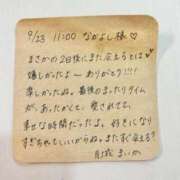 9/23 11:00 なかよし様♡
まさかの2日後にまた会えるとは
嬉しかったよ〜ありがとう!!!
楽しかったね。最後のまったりタイム
が、あったかくて、愛されてて、
幸せな時間だったよ。好きになり
すぎちゃとしいからね。またすぐ会える?
まいか